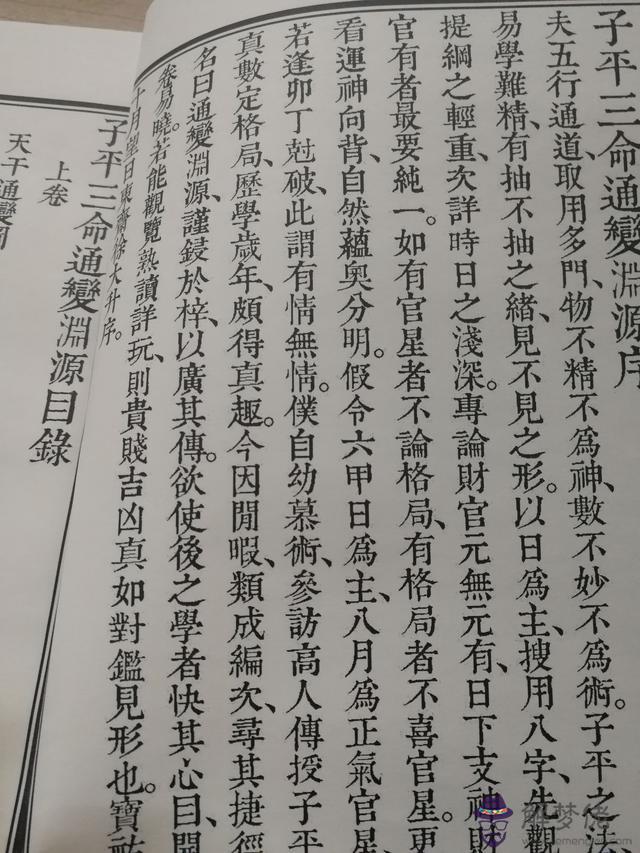 子平三命通變淵源序
夫五行通道、取用多門、物不精不爲神、數不妙不爲術。子平之法、
易學難精、有抽不抽之緒、見不見之形。以日爲主、搜用八字、先觀
提綱之輕重、次詳時日之淺深。專論財官元無元有、日下支神財
官有者最要純一。如有官星者不論格局、有格局者不喜官星。更
看運神向背、自然蘊奧分明。假令六甲日爲主、八月爲正氣官星、
若逢卯丁尅破、此謂有情無情。僕自幼慕術、參訪高人傳授子平
真數定格局、歷學歲年、頗得真趣。今因閒暇、類成編次、尋其捷徑
名曰通變淵源、謹鋟於梓、以廣其傳。欲使後之學者快其心目、開
卷易曉。若能觀覽熟讀詳玩、則貴賤吉凶真如對鑑見形也。寶祐
十月望日東齋徐大升序。
子平三命通變淵源目錄
上卷
天干通變圖
解梦佬